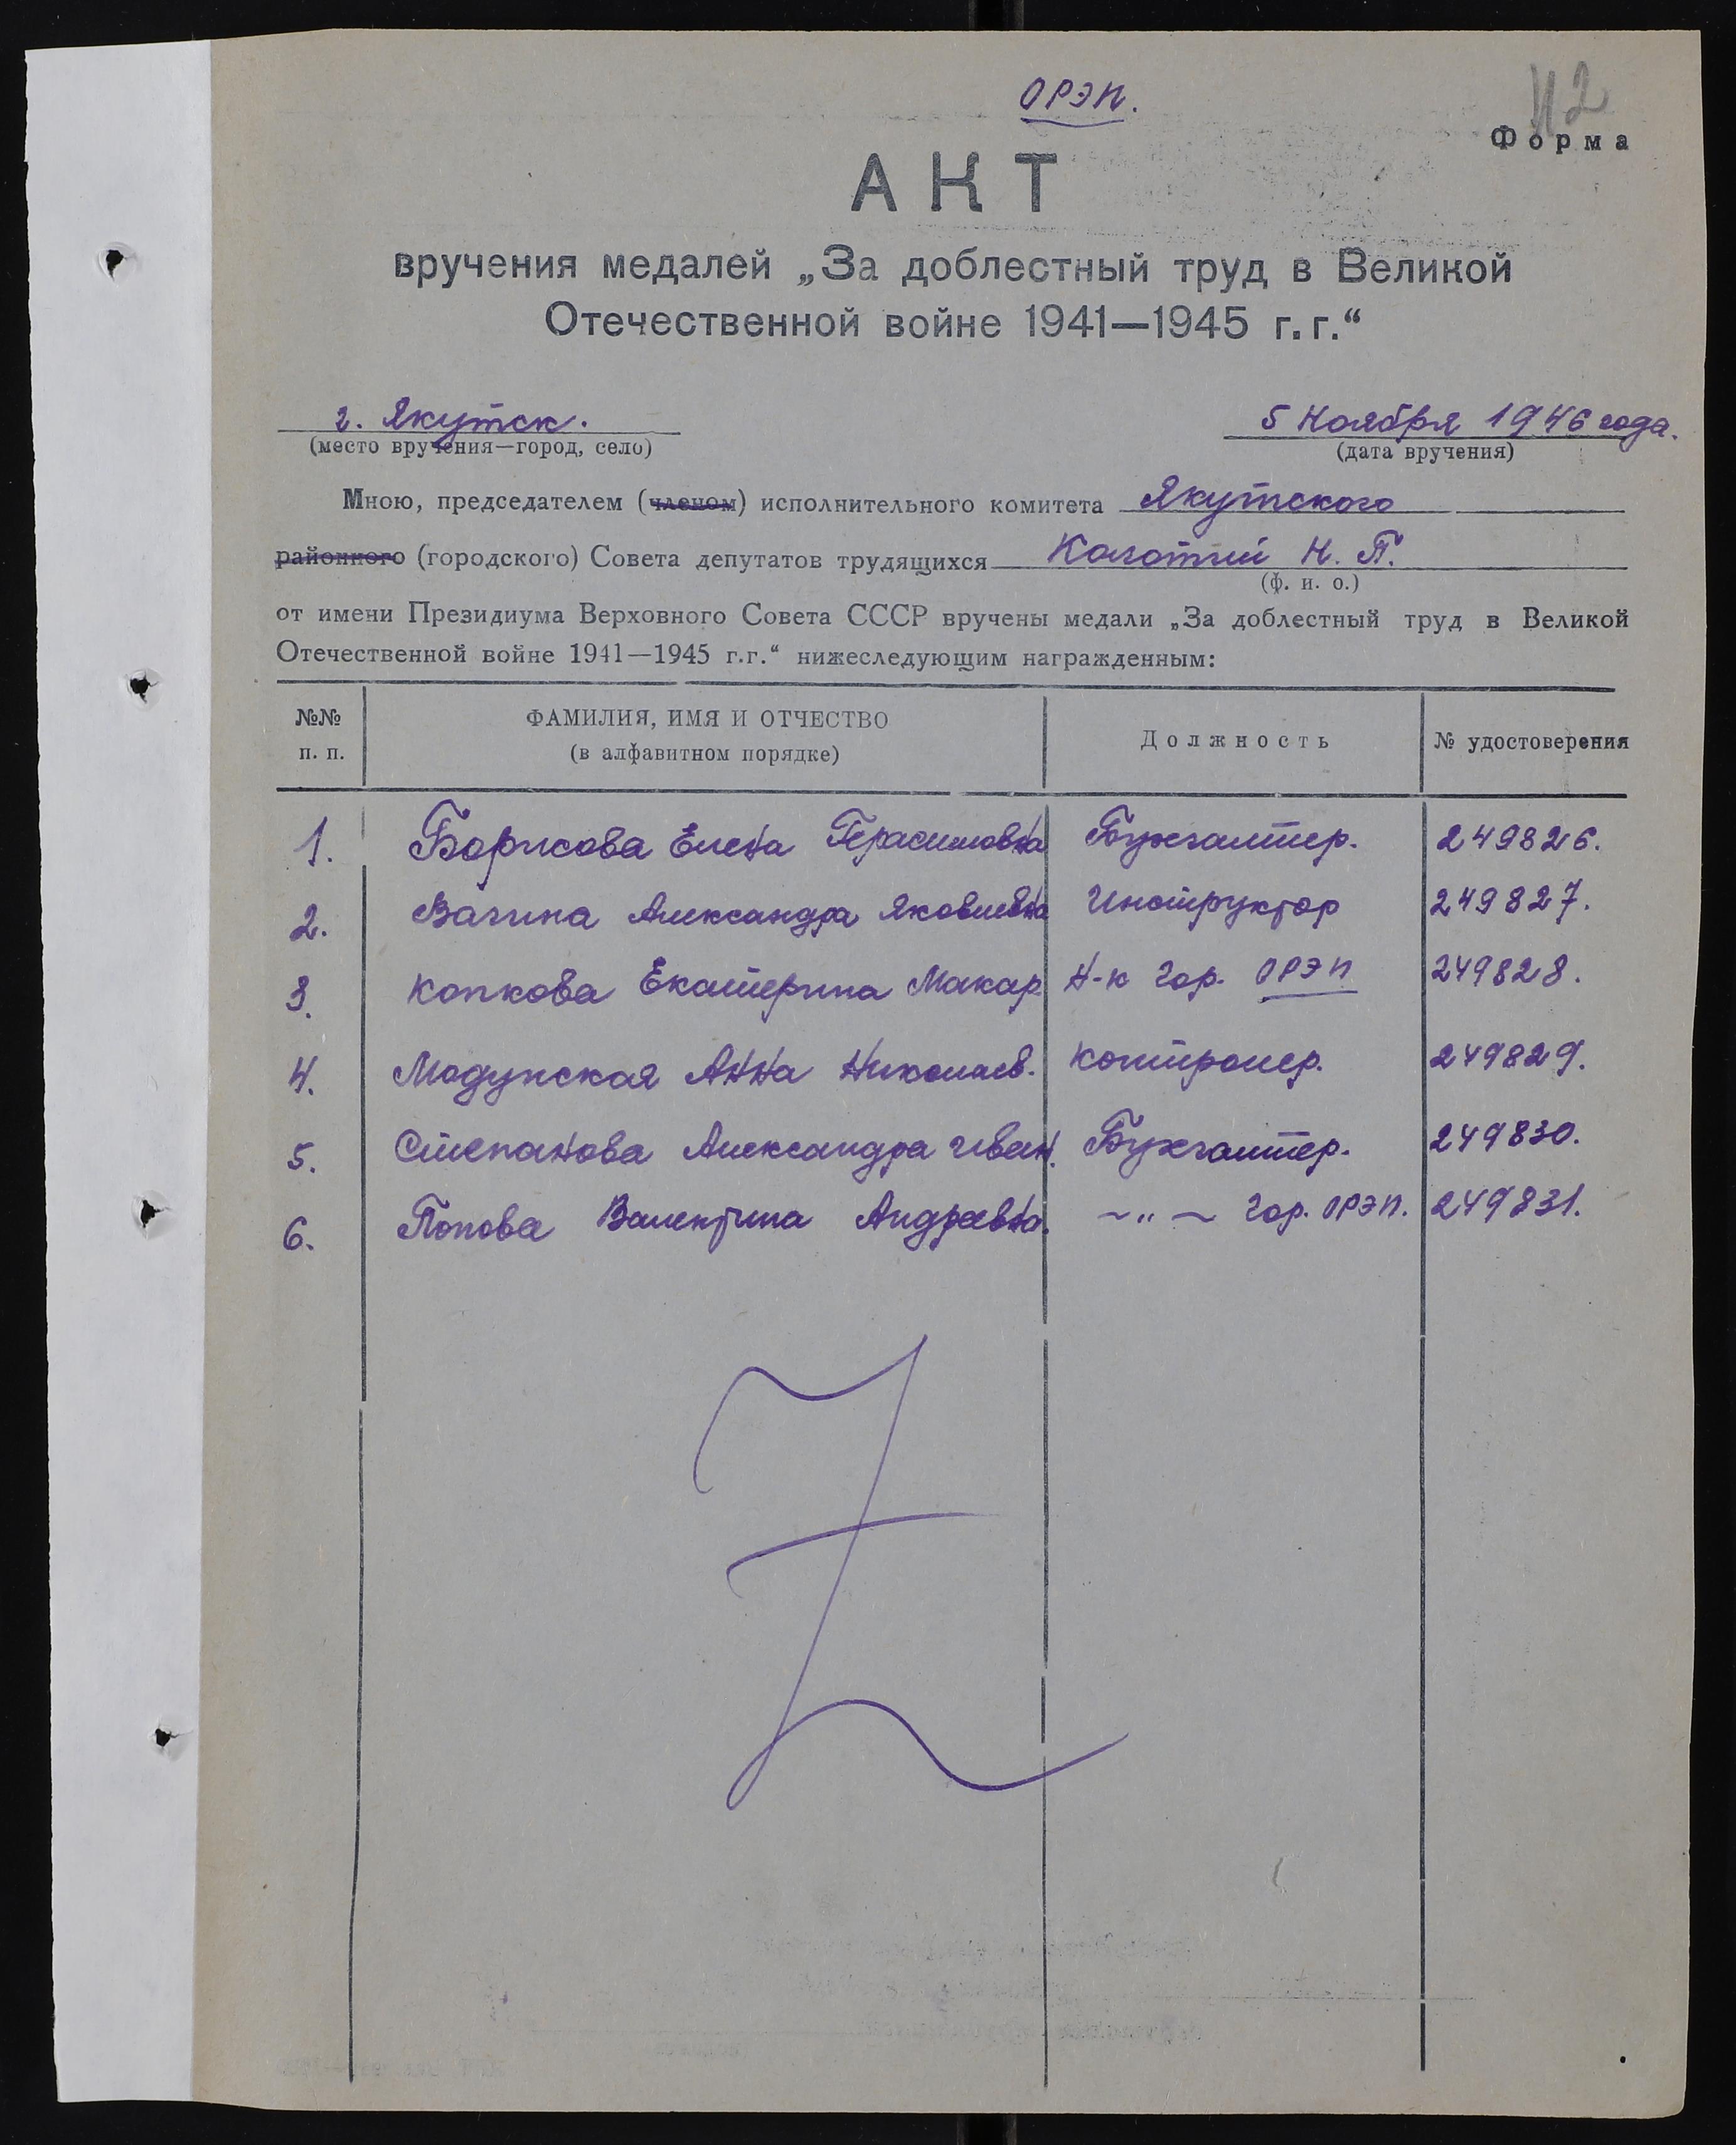 ОРЭП.
42
Форма
АКТ
вручения медалей „За доблестный труд в Великой
Отечественной войне 1941—1945 г.г.“
г. Якутск.
5 ноября 1946 года.
(место вручения—город, село)
(дата вручения)
Мною, председателем (членом) исполнительного комитета Якутского
районного (городского) Совета депутатов трудящихся Колотий Н. П.
(ф. и. о.)
от имени Президиума Верховного Совета СССР вручены медали „За доблестный труд в Великой
Отечественной войне 1941—1945 г.г.“ нижеследующим награжденным:
№№ п. п. ФАМИЛИЯ, ИМЯ И ОТЧЕСТВО (в алфавитном порядке) Должность № удостоверения
1. Борисова Елена Герасимовна Бухгалтер. 249826.
2. Вагина Александра Яковлевна Инструктор 249827.
3. Копкова Екатерина Макар. Н-к Гор. ОРЭП 249828.
4. Модунская Анна Николаев. контролер. 249829.
5. Степанова Александра Иван. Бухгалтер. 249830.
6. Попова Валентина Андреевна. ~ " ~ Гор. ОРЭП. 249831.